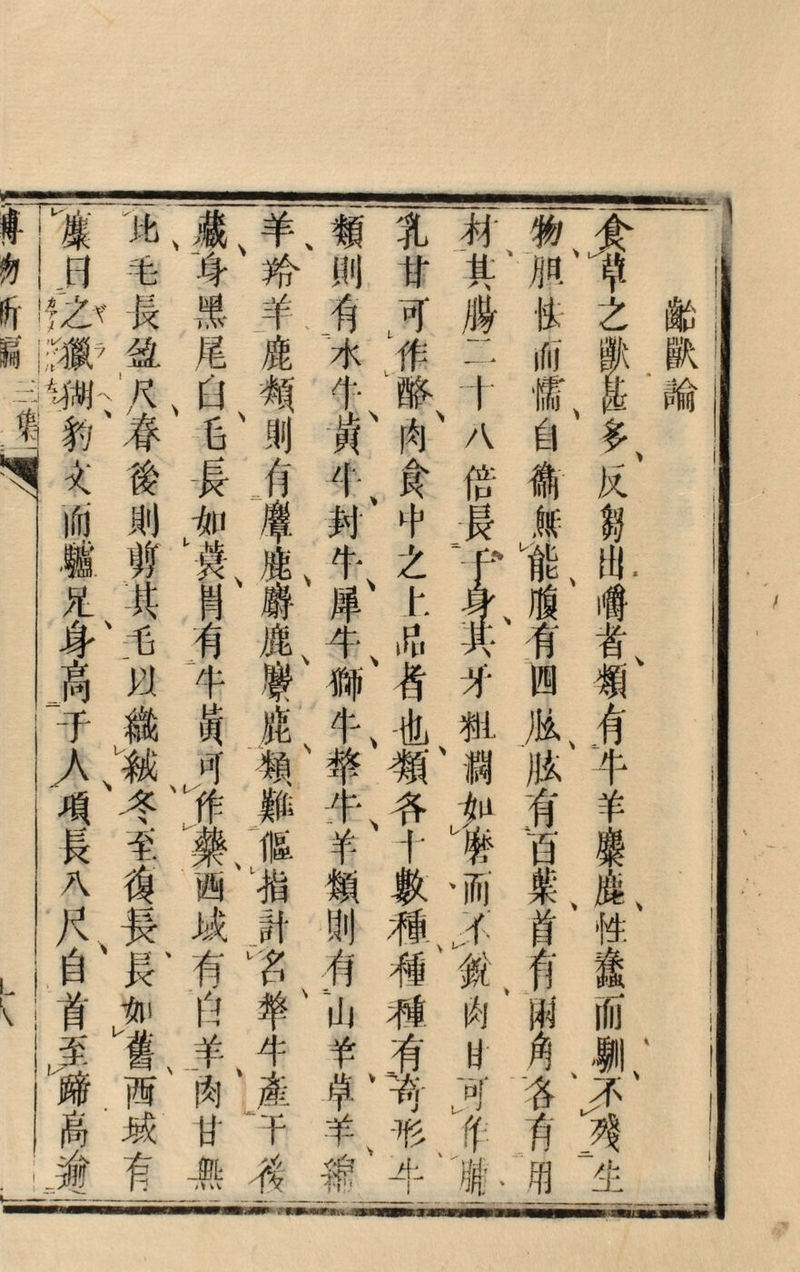 齝獸論
食草之獸甚多反芻出嚼者類有牛羊麋鹿性蠢而馴不殘生
物胆怯而懦自衛無能腹有四胘胘有百葉首有兩角各有用
材其腸二十八倍長于身其牙粗濶如磨而不銳肉甘可作脯
乳甘可作酪肉食中之上品者也類各十數種種種有奇形牛
類則有水牛黃牛封牛犀牛獅牛犛牛羊類則有山羊草羊綿
羊羚羊鹿類則有麞鹿麝鹿麖鹿類難傴指計名犛牛產于後
藏身黑尾白毛長如蓑胃有牛黃可作藥西域有白羊肉甘無
比毛長盈尺春後則剪其毛以織絨冬至復長長如舊西域有
麋曰之獵猢豹文而驢兄身高于人項長八尺自首至蹄高逾
ヂラヘ
博物新編
三集